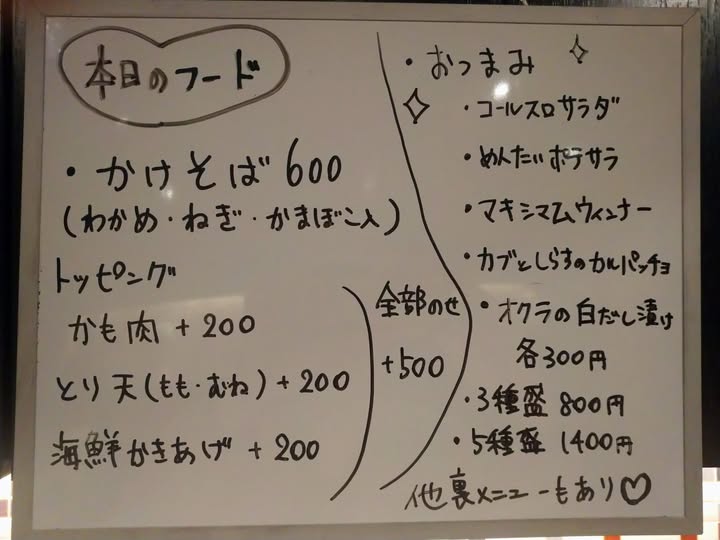 本日のフード
・かけそば 600
(わかめ・ねぎ・かまぼこ入)
トッピング
かも肉 +200
とり天(もも・むね) +200
海鮮かきあげ +200
全部のせ
+500
・おつまみ
・コールスロサラダ
・めんたいポテサラ
・マキシマムウィンナー
・カブとしらすのカルパッチョ
・オクラの白だし漬け
各300円
・3種盛 800円
・5種盛 1400円
他裏メニューもあり♡